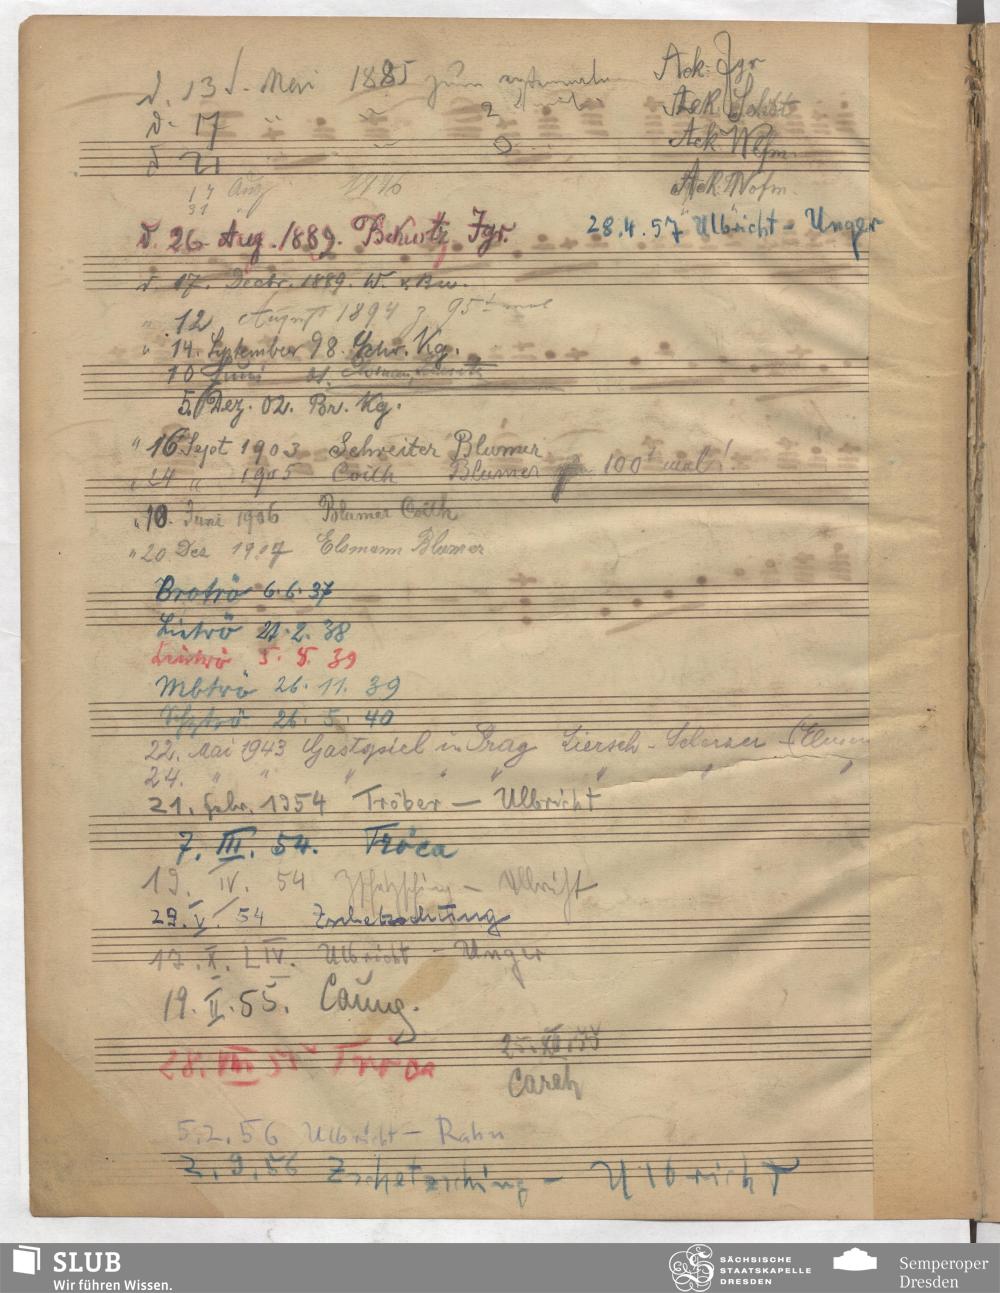 d. 13. Mai 1885 zum erstenmale Ack. Jgr
d. 17 " " 2 " mal Ack.
d 21 " 0 Ack. Wofm.
17 Aug 1886 Ack. Wofm.
31 "
d. 26. Aug. 1889. Jgr. 28.4.57 Ulbricht - Unger
d. 17. Decbr. 1889. W. v. Bu.
" 12 August 1894 z 95t mal
" 14. September 98. Schr. Kg.
10 Juni 01.
5. Dez. 02. Br. Kg.
" 16 Sept 1903 Schreiter Blumer
" 24 " 1905 Coith Blumer zum 100t mal!
" 10. Juni 1906 Blumer Coith
" 20 Dez 1907 Elsmann Blumer
Brotrö 6.6.37
Lietrö 21.2.38
Lietrö 5.5.39
Mbtrö 26.11.39
26.5.40
22. Mai 1943 Gastspiel in Prag Liersch -
24. " " " " " " " "
21. Febr. 1954 Tröber - Ulbricht
7. III. 54. Tröca
19. IV. 54 Zschetzsching - Ulbricht
29. V. 54 Zschetzsching
17. X. LIV. Ulbricht - Unger
19. II. 55. Caung.
28. VIII 55 Tröca 25. XII 55
Carah
5.2.56 Ulbricht - Rahn
2.9.56 Zschetzsching - Ulbricht
SLUB
Wir führen Wissen.
SÄCHSISCHE
STAATSKAPELLE
DRESDEN
Semperoper
Dresden